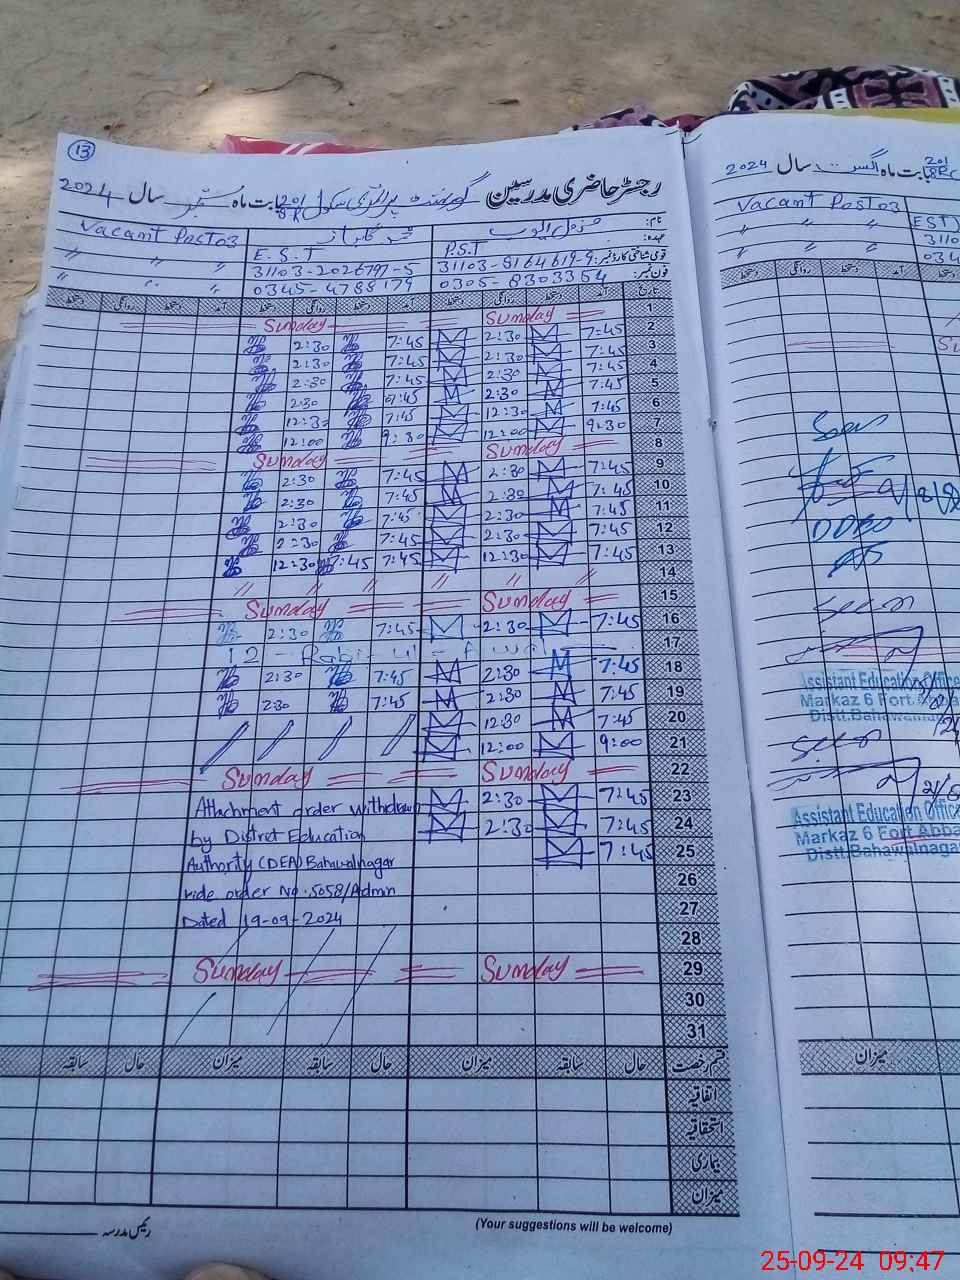 13
رجسٹر حاضری مدرسین گورنمنٹ پرائمری سکول 201/8R بابت ماہ ستمبر سال 2024
نام:
عہدہ: P.S.T E.S.T Vacant Post 03
قومی شناختی کارڈ نمبر: 31103-8164619-9 31103-2026797-5 〃 〃 〃
فون نمبر: 0305-8303354 0345-4788179 〃 〃 〃
تاریخ آمد دستخط روانگی دستخط آمد دستخط روانگی دستخط آمد دستخط روانگی دستخط
1 Sunday Sunday
2 7:45 2:30 7:45 2:30
3 7:45 2:30 7:45 2:30
4 7:45 2:30 7:45 2:30
5 7:45 2:30 7:45 2:30
6 7:45 12:30 7:45 12:30
7 9:30 12:00 9:30 12:00
8 Sunday Sunday
9 7:45 2:30 7:45 2:30
10 7:45 2:30 7:45 2:30
11 7:45 2:30 7:45 2:30
12 7:45 2:30 7:45 2:30
13 7:45 12:30 7:45 12:30
14 〃 〃 〃 〃 〃 〃
15 Sunday Sunday
16 7:45 2:30 7:45 2:30
17 12 - Rabi-ul-Awal
18 7:45 2:30 7:45 2:30
19 7:45 2:30 7:45 2:30
20 7:45 12:30
21 9:00 12:00
22 Sunday Sunday
23 7:45 2:30
24 7:45 2:30
25 7:45
26
27
28
Attachment order withdrawn
by Distret Education
Authority (DEA) Bahawalnagar
vide order No. 5058/Admn
Dated 19-09-2024
29 Sunday Sunday
30
31
قسم رخصت حال سابقہ میزان حال سابقہ میزان حال سابقہ
اتفاقیہ
استحقاقیہ
بیماری
میزان
(Your suggestions will be welcome)
رئیس مدرسہ
بابت ماہ اگست سال 2024
201
8R
Vacant Post 03
〃 〃 〃
〃 〃 〃
EST)
دستخط روانگی دستخط آمد
Seen
DDEO
Seen
Assistant Education Office
Markaz 6 Fort Abba
Distt.Bahawalnaga
Seen
Assistant Education Office
Markaz 6 Fort Abba
Distt.Bahawalnaga
میزان
25-09-24 09:47